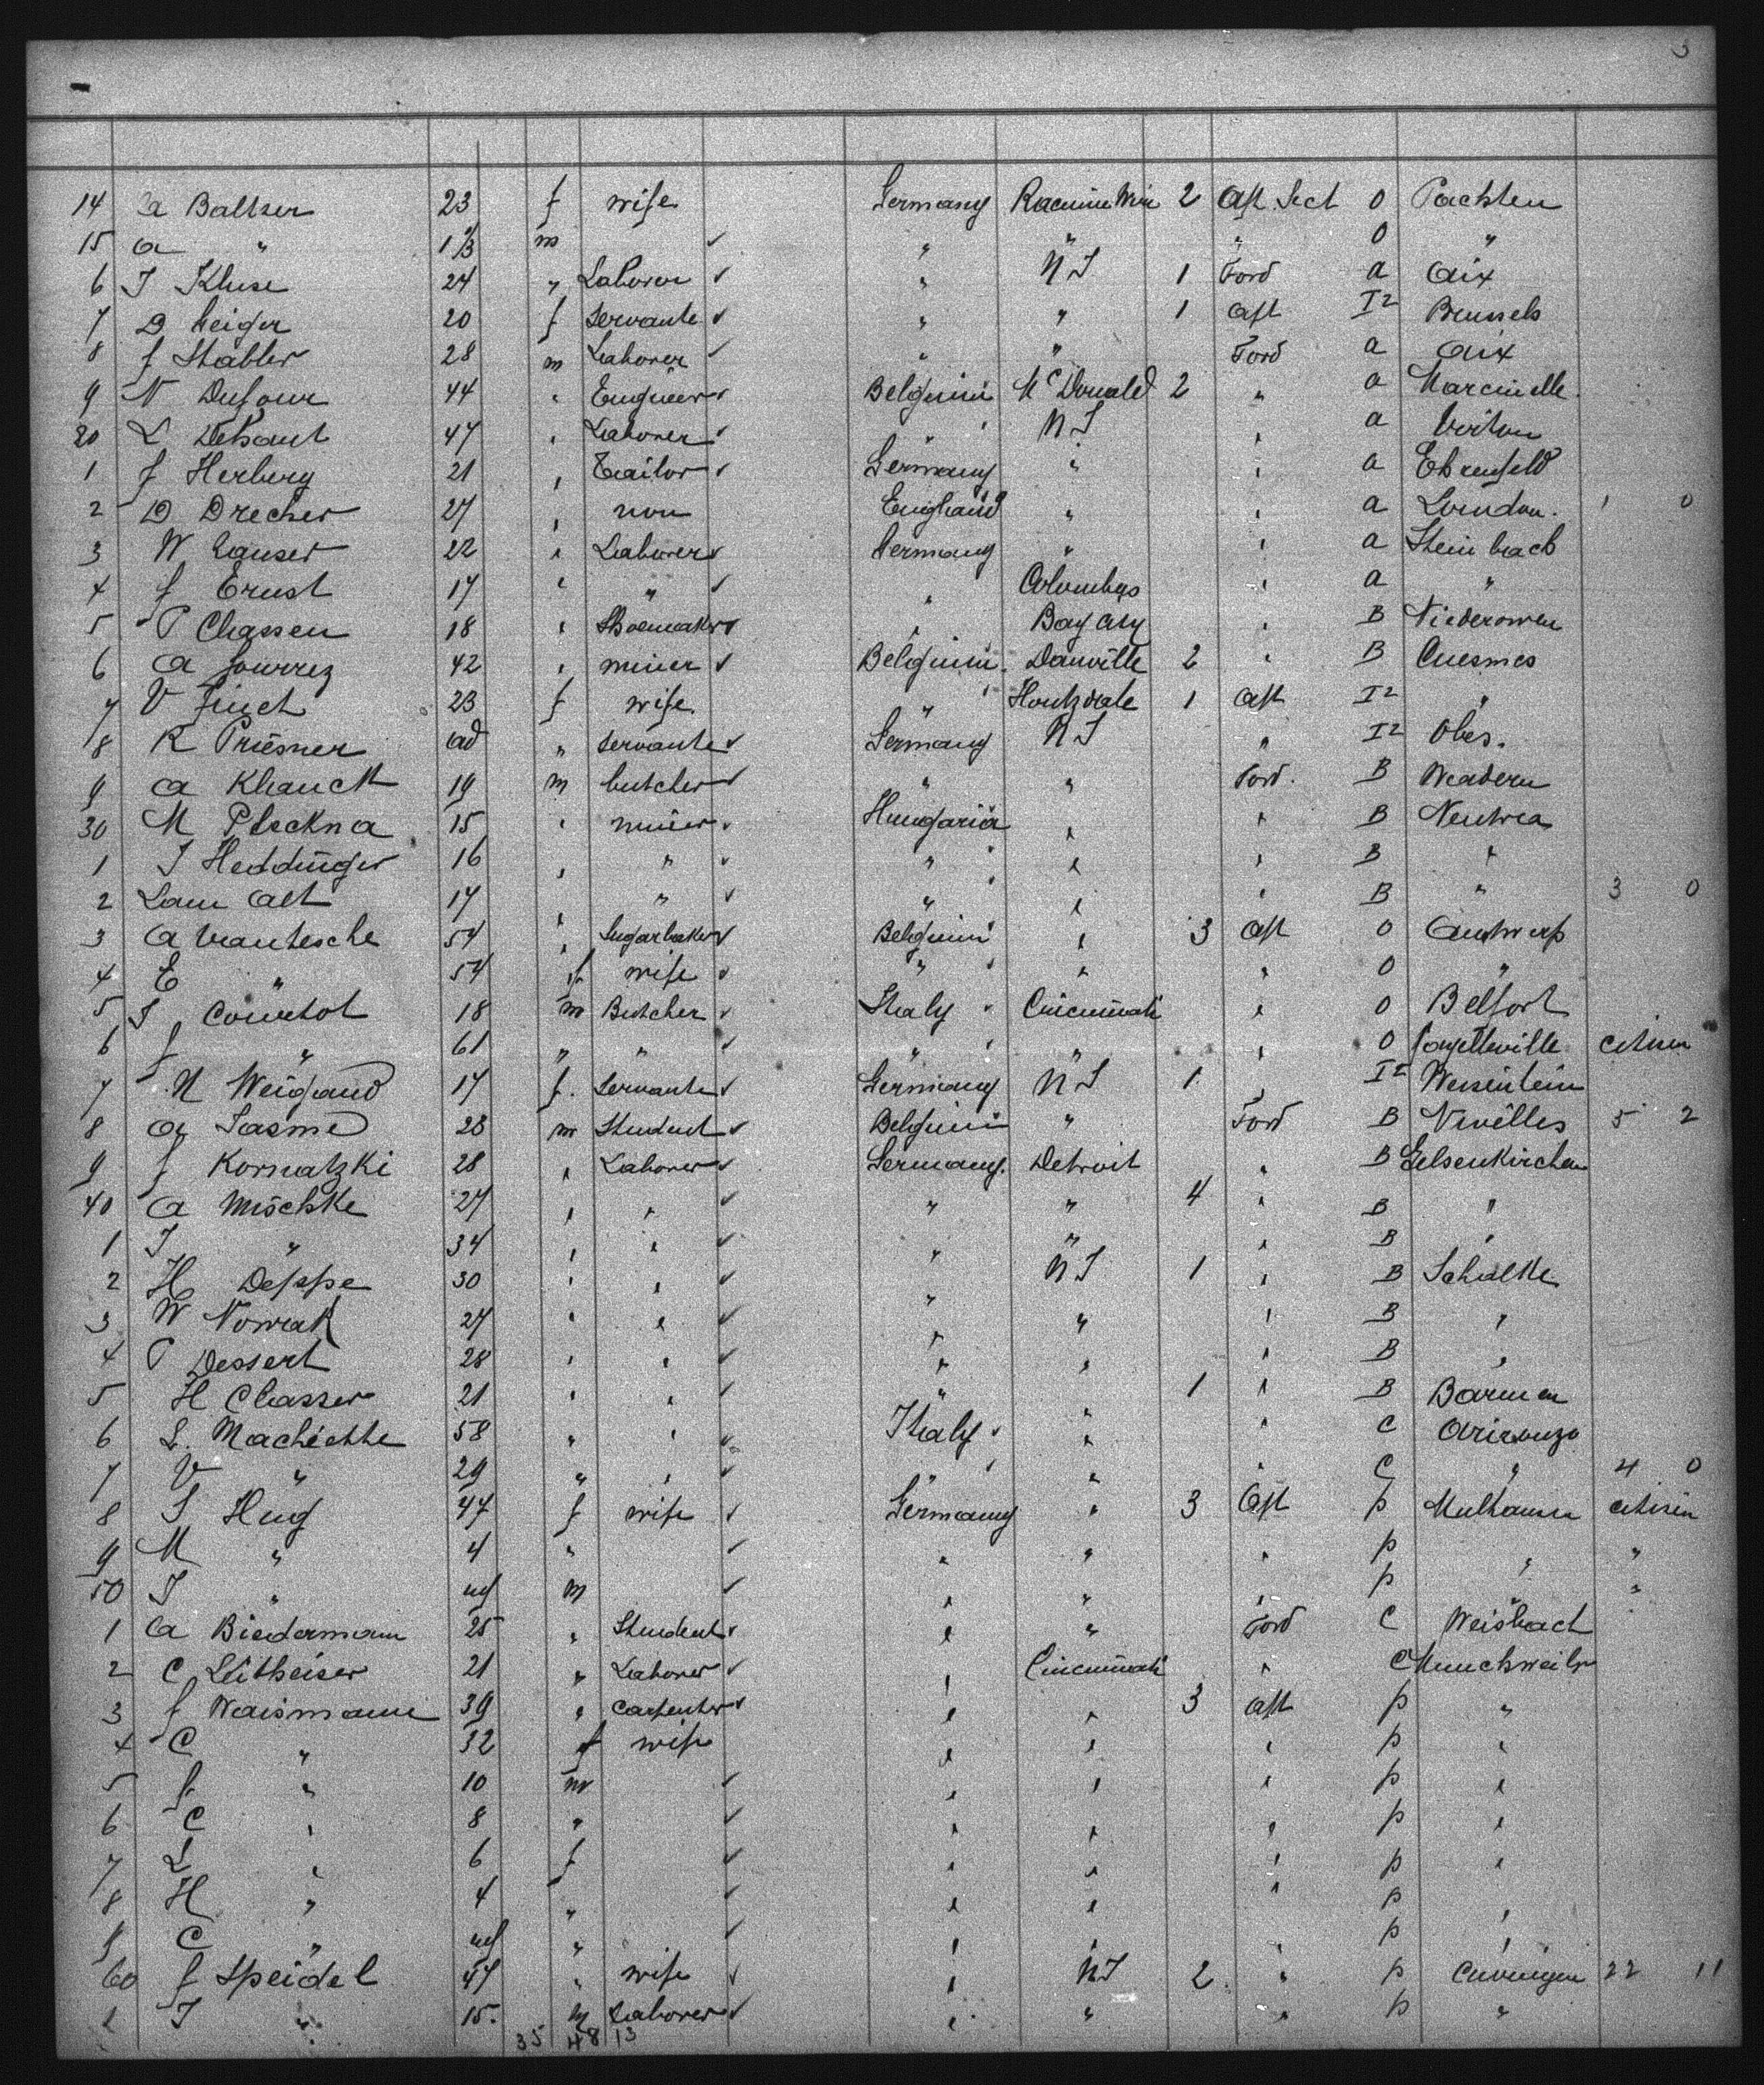 14 A Baltser 23 f wife Germany Racine Wis 2 Aft. Sect O Pachten
15 a " 1/3 m " " " O "
6 J Kluse 24 " Laborer " N J 1 Ford a Aix
7 D Geiger 20 f Servante " " 1 aft I2 Brussels
8 J Stabler 28 m Laborer " " Ford a Aix
9 N Dufour 44 " Engineer Belguim Mc Donald 2 " a Marcinelle.
20 L 47 " Laborer " N J " a Virton
1 J Herberg 21 " Tailor Germany " " a Ehrenfeld
2 D Drecher 27 " non England " " a London. 1 0
3 W Lauser 22 " Laborer Germany " " a Steinbach
4 J Ernst 17 " " " Columbus " a "
5 P Classen 18 " Shoemaker " Bay City " B
6 a 42 " miner Belguim Danville 2 " B Cuesmes
7 V 23 f wife. " Houtzdale 1 aft I2 "
8 R Priesner ad " servante Germany N J " I2
9 a Khauck 19 m butcher " " Ford. B Wadern
30 M Pleckna 15 " miner Hungaria " " B Neutra
1 J Heddinger 16 " " " " " B "
2 Lam Alt 17 " " " " " B " 3 0
3 A 54 " Sugarbaker Belguim " 3 aft O Antwerp
4 E " 54 f wife " " " O "
5 J Courtot 18 m Butcher Italy Cincinnati " O Belfort
6 J " 61 " " " " " O Fayetteville citisen
7 N Weigand 17 f. Servante Germany N J 1 " I2
8 A Jasme 23 m Student Belguim " Ford B Nivelles 5 2
9 J Kornatzki 28 " Laborer Germany. Detroit " B Gelsenkirchen
40 a Mischke 27 " " " " 4 " B "
1 J " 34 " " " " " B "
2 H Deppe 30 " " " N J 1 " B Schalke
3 W Nowak 27 " " " " " B "
4 P Dessert 28 " " " " " B "
5 H Classer 21 " " " " 1 " B Barmen
6 L. 58 " " Italy " " C Arienzo
7 V " 29 " " " " " C " 4 0
8 S Hug 47 f wife Germany " 3 Aft p Mulhausen citisen
9 M " 4 " " " " p " "
50 J " m " " " p " "
1 A Biedermann 25 " Student " " Ford C Weisbach
2 C Leitheiser 21 " Laborer " Cincinnati " C Munchweiler
3 J Waismann 39 " Carpenter " " 3 aft p "
4 C " 32 f wife " " " p "
5 J " 10 m " " " p "
6 C " 8 " " " " p "
7 L " 6 f " " " p "
8 H " 4 " " " " p "
9 C " " " " " p "
60 J Speidel 47 " wife " N J 2 " p 22 11
1 J " 15. m Laborer " " " p "
35 48 13